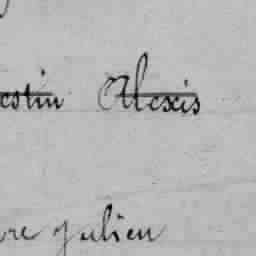 estin Alexis
re Julien